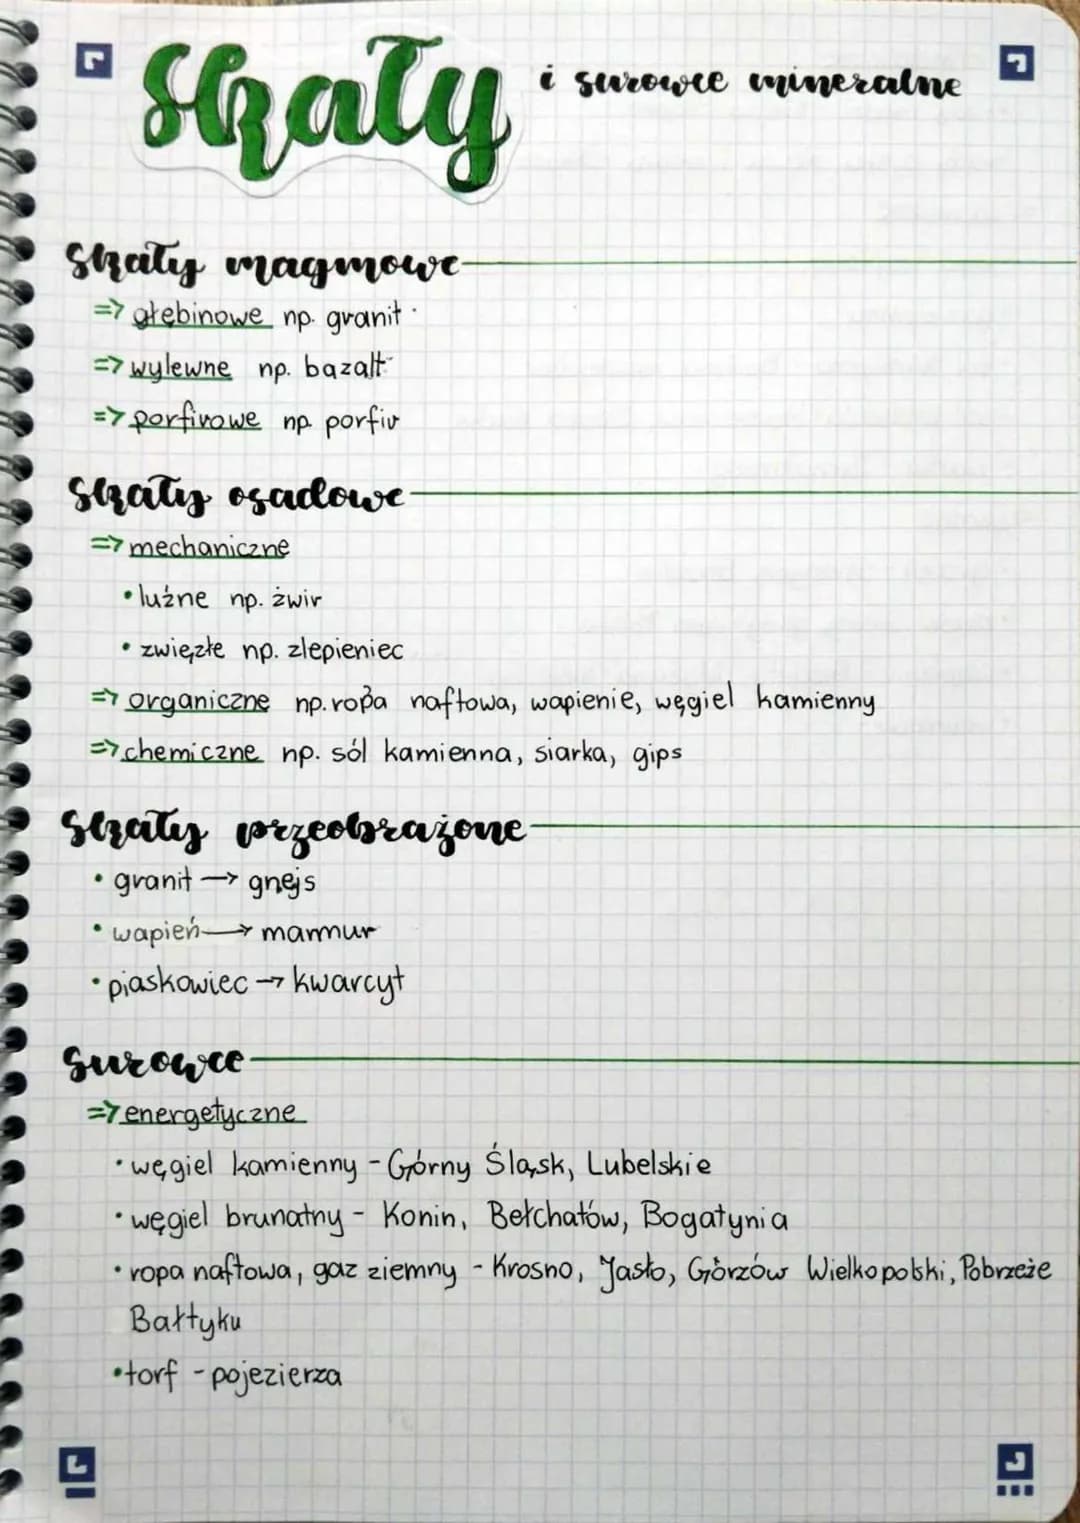 skały i surowce mineralne
skały magmowe
=> głębinowe np. granit
=> wylewne np. bazalt
=> porfirowe np. porfir
skały osadowe
=> mechaniczne
• luźne np. żwir
• zwięzłe np. zlepieniec
=> organiczne np. ropa naftowa, wapienie, węgiel kamienny
=> chemiczne np. sól kamienna, siarka, gips
skały przeobrażone
• granit → gnejs
• wapień → marmur
• piaskowiec → kwarcyt
surowce
=> energetyczne
• węgiel kamienny - Górny Śląsk, Lubelskie
• węgiel brunatny - Konin, Bełchatów, Bogatynia
• ropa naftowa, gaz ziemny - Krosno, Jasło, Górzów Wielkopolski, Pobrzeże
Bałtyku
• torf - pojezierza